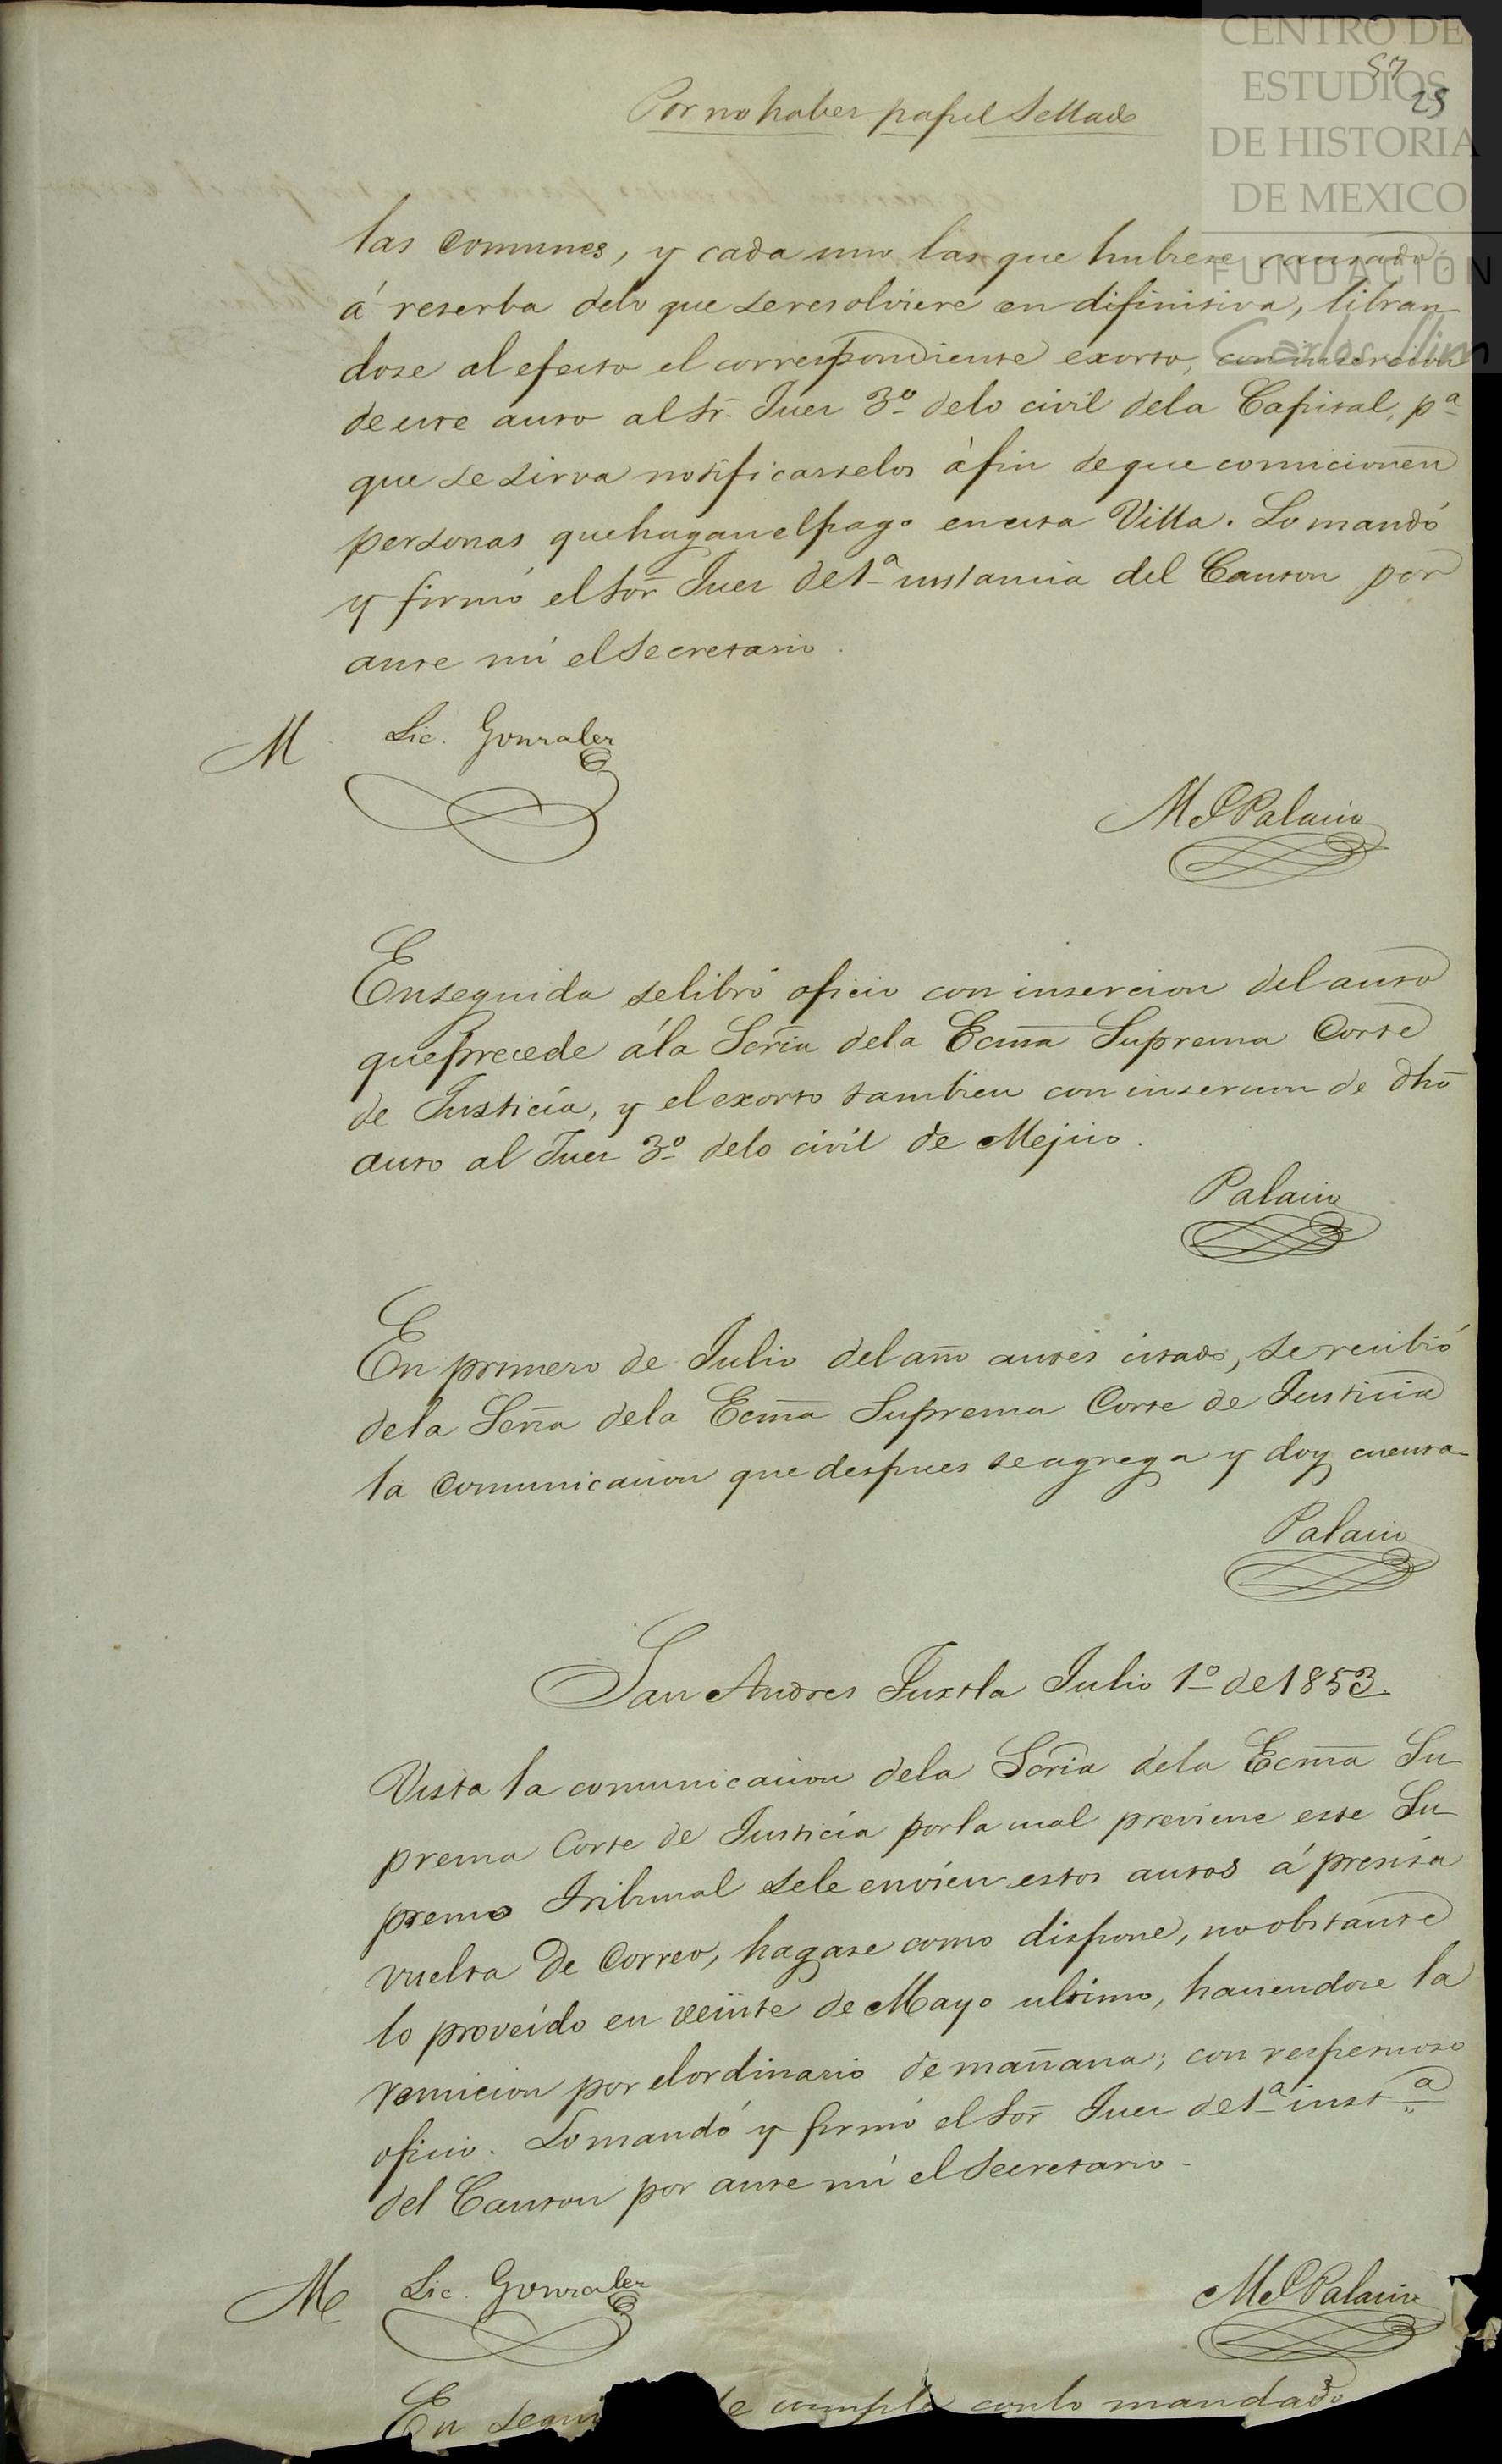 CENTRO DE
ESTUDIOS
DE HISTORIA
DE MEXICO
FUNDACIÓN
Carlos Slim
57
25
Por no haber papel Sellado
las comunes, y cada uno las que hubiese causado,
á reserba delo que se resolviere en difinitiva, libran-
dose al efecto el correspondiente exorto, con insercion
de este auto al Sr. Juez 3º delo civil dela Capital, pª
que se sirva notificarselos áfin de que comicionen
personas que hagan el pago en esta Villa. Lo mandó
y firmó el Sor Juez de 1ª instancia del Canton por
ante mi el Secretario.
M Lic. Gonzalez
M P Palacio
Enseguida se libró oficio con insercion del auto
que precede ála Sería dela Ecma Suprema Corte
de Justicia, y el exorto tambien con insercion de dho
auto al Juez 3º delo civil de Mejico.
Palacio
En primero de Julio del año antes citado, se recibió
dela Sería dela Ecma Suprema Corte de Justicia
la comunicacion que despues se agrega y doy cuenta-
Palacio
San Andres Tuxtla Julio 1º de 1853.
Vista la comunicacion dela Sría dela Ecma Su-
prema Corte de Justicia por la cual previene este Su-
premo Tribunal se le envien estos autos á precisa
vuelta de Correo, hagase como dispone, no obstante
lo proveido en veinte de Mayo ultimo, haciendose la
remicion por el ordinario de mañana; con respetuoso
oficio. Lo mandó y firmó el Sor Juez de 1ª instª
del Canton por ante mi el Secretario-
M Lic. Gonzalez
M P Palacio
En segui se cumplió con lo mandado